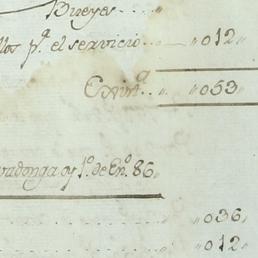 Bueyes .... "
llos p.ª el servicio .. " 012 "
Exist.ª .. " 053 "
vadonga oy 1.º de En.º 86 "
.... " 036 "
.... " 012 "